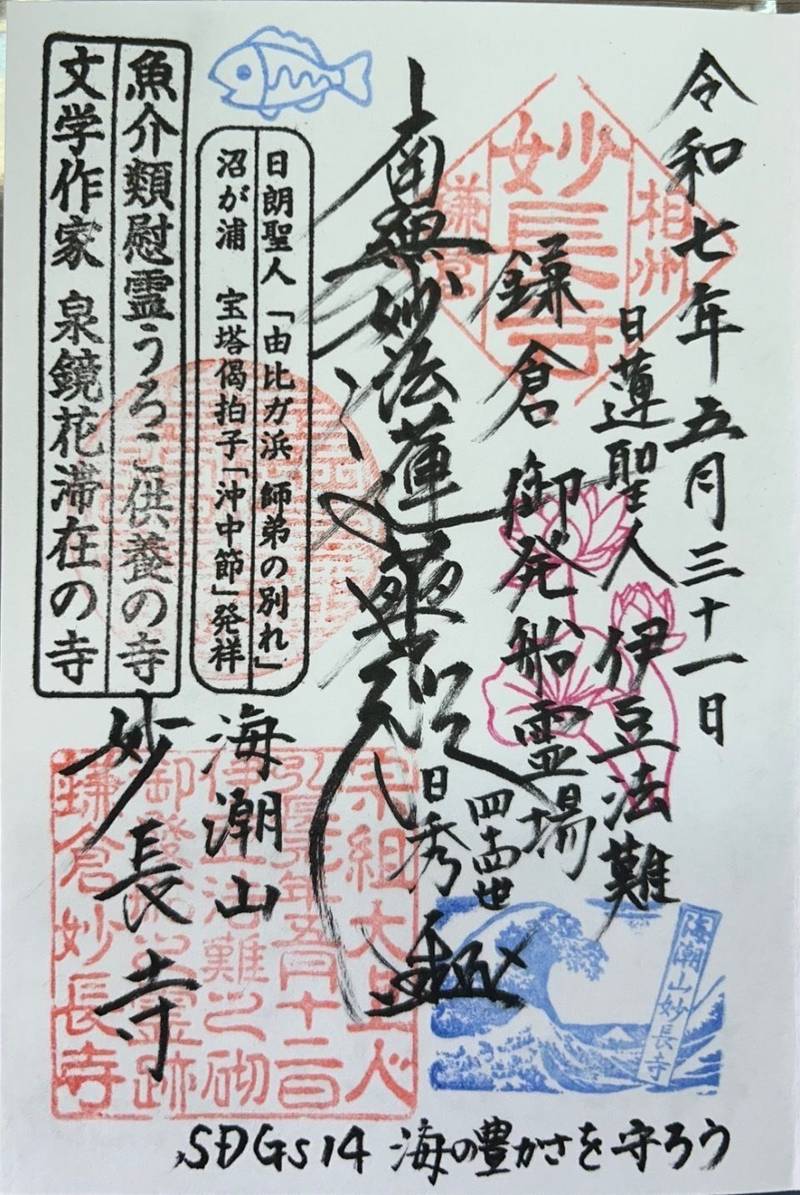 令和七年五月三十一日
相州
妙長寺
鎌倉
日蓮聖人 伊豆法難
鎌倉御発船霊場
南無妙法蓮華経
四十四世
日秀
日朗聖人「由比ガ浜 師弟の別れ」
沼が浦 宝塔偈拍子「沖中節」発祥
魚介類慰霊うろこ供養の寺
文学作家 泉鏡花滞在の寺
海潮山
妙長寺
宗祖大上人
弘長元年五月十二日
伊豆法難之砌
御發船之霊跡
鎌倉妙長寺
海潮山妙長寺
SDGs14 海の豊かさを守ろう